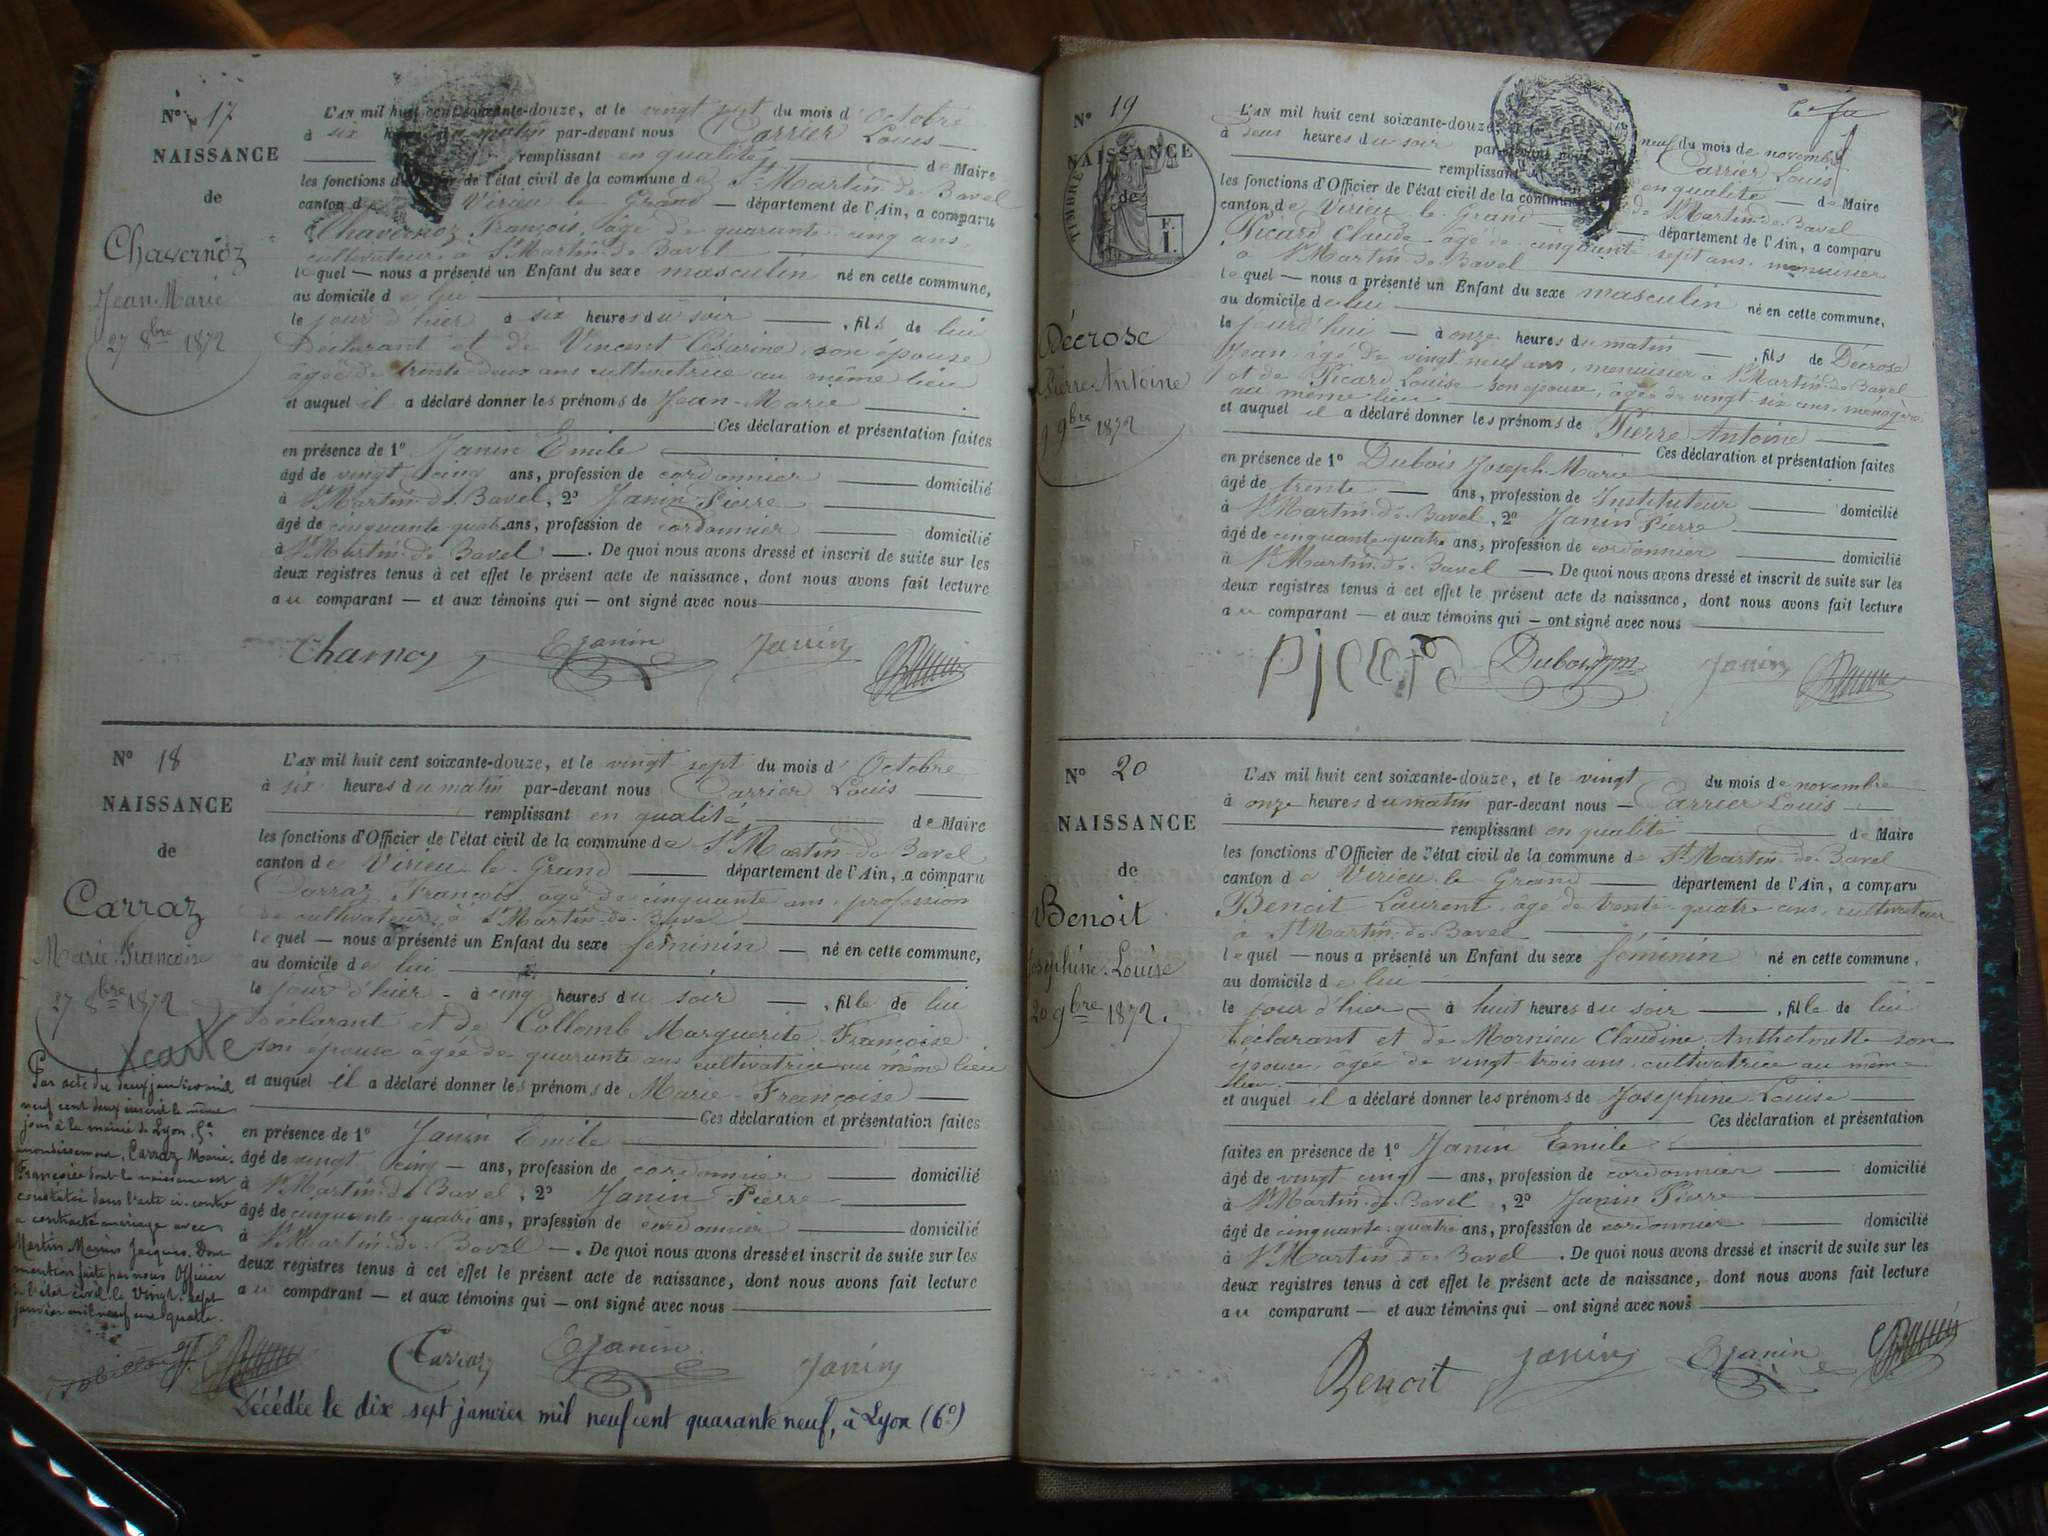 N° 17
NAISSANCE
de
Chavernoz
Jean-Marie
27 8bre 1872
L'AN mil huit cent soixante-douze, et le vingt sept du mois d'Octobre
à six heures du matin par-devant nous Carrier Louis
remplissant en qualité de Maire
les fonctions d'Officier de l'état civil de la commune de St Martin-de-Bavel
canton de Virieu le Grand département de l'Ain, a comparu
Chavernoz François, âgé de quarante cinq ans,
cultivateur à St Martin-de-Bavel
lequel nous a présenté un Enfant du sexe masculin né en cette commune,
au domicile de lui
le jour d'hier à six heures du soir, fils de lui
déclarant et de Vincent Césarine, son épouse
âgée de trente-deux ans cultivatrice au même lieu
et auquel il a déclaré donner les prénoms de Jean-Marie
Ces déclaration et présentation faites
en présence de 1° Janin Emile
âgé de vingt cinq ans, profession de cordonnier domicilié
à St Martin-de-Bavel, 2° Janin Pierre
âgé de cinquante quatre ans, profession de cordonnier domicilié
à St Martin-de-Bavel. De quoi nous avons dressé et inscrit de suite sur les
deux registres tenus à cet effet le présent acte de naissance, dont nous avons fait lecture
au comparant et aux témoins qui ont signé avec nous
EJanin Janin
N° 18
NAISSANCE
de
Carraz
Marie-Françoise
27 8bre 1872
carte
L'AN mil huit cent soixante-douze, et le vingt-sept du mois d'Octobre
à six heures du matin par-devant nous Carrier Louis
remplissant en qualité de Maire
les fonctions d'Officier de l'état civil de la commune de St Martin-de-Bavel
canton de Virieu le Grand département de l'Ain, a comparu
Carraz François, âgé de cinquante ans, profession
de cultivateur à St Martin-de-Bavel
lequel nous a présenté un Enfant du sexe féminin né en cette commune,
au domicile de lui
le jour d'hier à cinq heures du soir, fille de lui
déclarant et de Collomb Marguerite Françoise
son épouse âgée de quarante ans cultivatrice au même lieu
et auquel il a déclaré donner les prénoms de Marie-Françoise
Ces déclaration et présentation faites
en présence de 1° Janin Emile
âgé de vingt cinq ans, profession de cordonnier domicilié
à St Martin-de-Bavel, 2° Janin Pierre
âgé de cinquante-quatre ans, profession de cordonnier domicilié
à St Martin-de-Bavel. De quoi nous avons dressé et inscrit de suite sur les
deux registres tenus à cet effet le présent acte de naissance, dont nous avons fait lecture
au comparant et aux témoins qui ont signé avec nous
Par acte du deux janvier mil
neuf cent deux inscrit le même
jour à la mairie de Lyon, 5e
arrondissement, Carraz Marie-
Françoise dont la naissance est
constatée dans l'acte ci-contre
a contracté mariage avec
Martin Marius Jacques. Dont
mention faite par nous Officier
de l'état civil le vingt-sept
janvier mil neuf cent quatre.
Carraz EJanin Janin
Décédée le dix sept janvier mil neuf cent quarante neuf, à Lyon (6e)
N° 19
NAISSANCE
de
TIMBRE
F.
1.
Décrose
Pierre-Antoine
9 9bre 1872
L'AN mil huit cent soixante-douze, neuf du mois de novembre
à deux heures du soir par-devant nous Carrier Louis
remplissant en qualité de Maire
les fonctions d'Officier de l'état civil de la commune de St Martin-de-Bavel
canton de Virieu-le-Grand département de l'Ain, a comparu
Picard Claude âgé de cinquante sept ans, menuisier
à St Martin-de-Bavel
lequel nous a présenté un Enfant du sexe masculin né en cette commune,
au domicile de lui
le jourd'hui à onze heures du matin, fils de Décrose
Jean, âgé de vingt neuf ans, menuisier à St Martin-de-Bavel
et de Picard Louise son épouse, âgée de vingt-six ans, ménagère
au même lieu
et auquel il a déclaré donner les prénoms de Pierre Antoine
Ces déclaration et présentation faites
en présence de 1° Dubois Joseph-Marie
âgé de trente ans, profession de Instituteur domicilié
à St Martin-de-Bavel, 2° Janin Pierre
âgé de cinquante quatre ans, profession de cordonnier domicilié
à St Martin-de-Bavel De quoi nous avons dressé et inscrit de suite sur les
deux registres tenus à cet effet le présent acte de naissance, dont nous avons fait lecture
au comparant et aux témoins qui ont signé avec nous
picard Dubois jm Janin
N° 20
NAISSANCE
de
Benoit
Joséphine-Louise
20 9bre 1872.
L'AN mil huit cent soixante-douze, et le vingt du mois de novembre
à onze heures du matin par-devant nous Carrier Louis
remplissant en qualité de Maire
les fonctions d'Officier de l'état civil de la commune de St Martin-de-Bavel
canton de Virieu le Grand département de l'Ain, a comparu
Benoit Laurent, âgé de trente-quatre ans, cultivateur
à St Martin-de-Bavel
lequel nous a présenté un Enfant du sexe féminin né en cette commune,
au domicile de lui
le jour d'hier à huit heures du soir, fille de lui
déclarant et de Mornieu Claudine Anthelmette son
épouse, âgée de vingt-trois ans, cultivatrice au même
lieu.
et auquel il a déclaré donner les prénoms de Joséphine Louise
Ces déclaration et présentation
faites en présence de 1° Janin Emile
âgé de vingt cinq ans, profession de cordonnier domicilié
à St Martin-de-Bavel, 2° Janin Pierre
âgé de cinquante-quatre ans, profession de cordonnier domicilié
à St Martin-de-Bavel. De quoi nous avons dressé et inscrit de suite sur les
deux registres tenus à cet effet le présent acte de naissance, dont nous avons fait lecture
au comparant et aux témoins qui ont signé avec nous
Benoit Janin EJanin